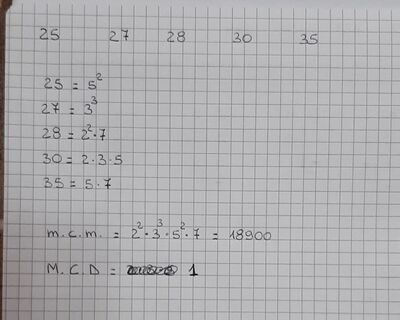 25 27 28 30 35
25 = 5²
27 = 3³
28 = 2²·7
30 = 2·3·5
35 = 5·7
m.c.m. = 2²·3³·5²·7 = 18900
M.C.D = 1